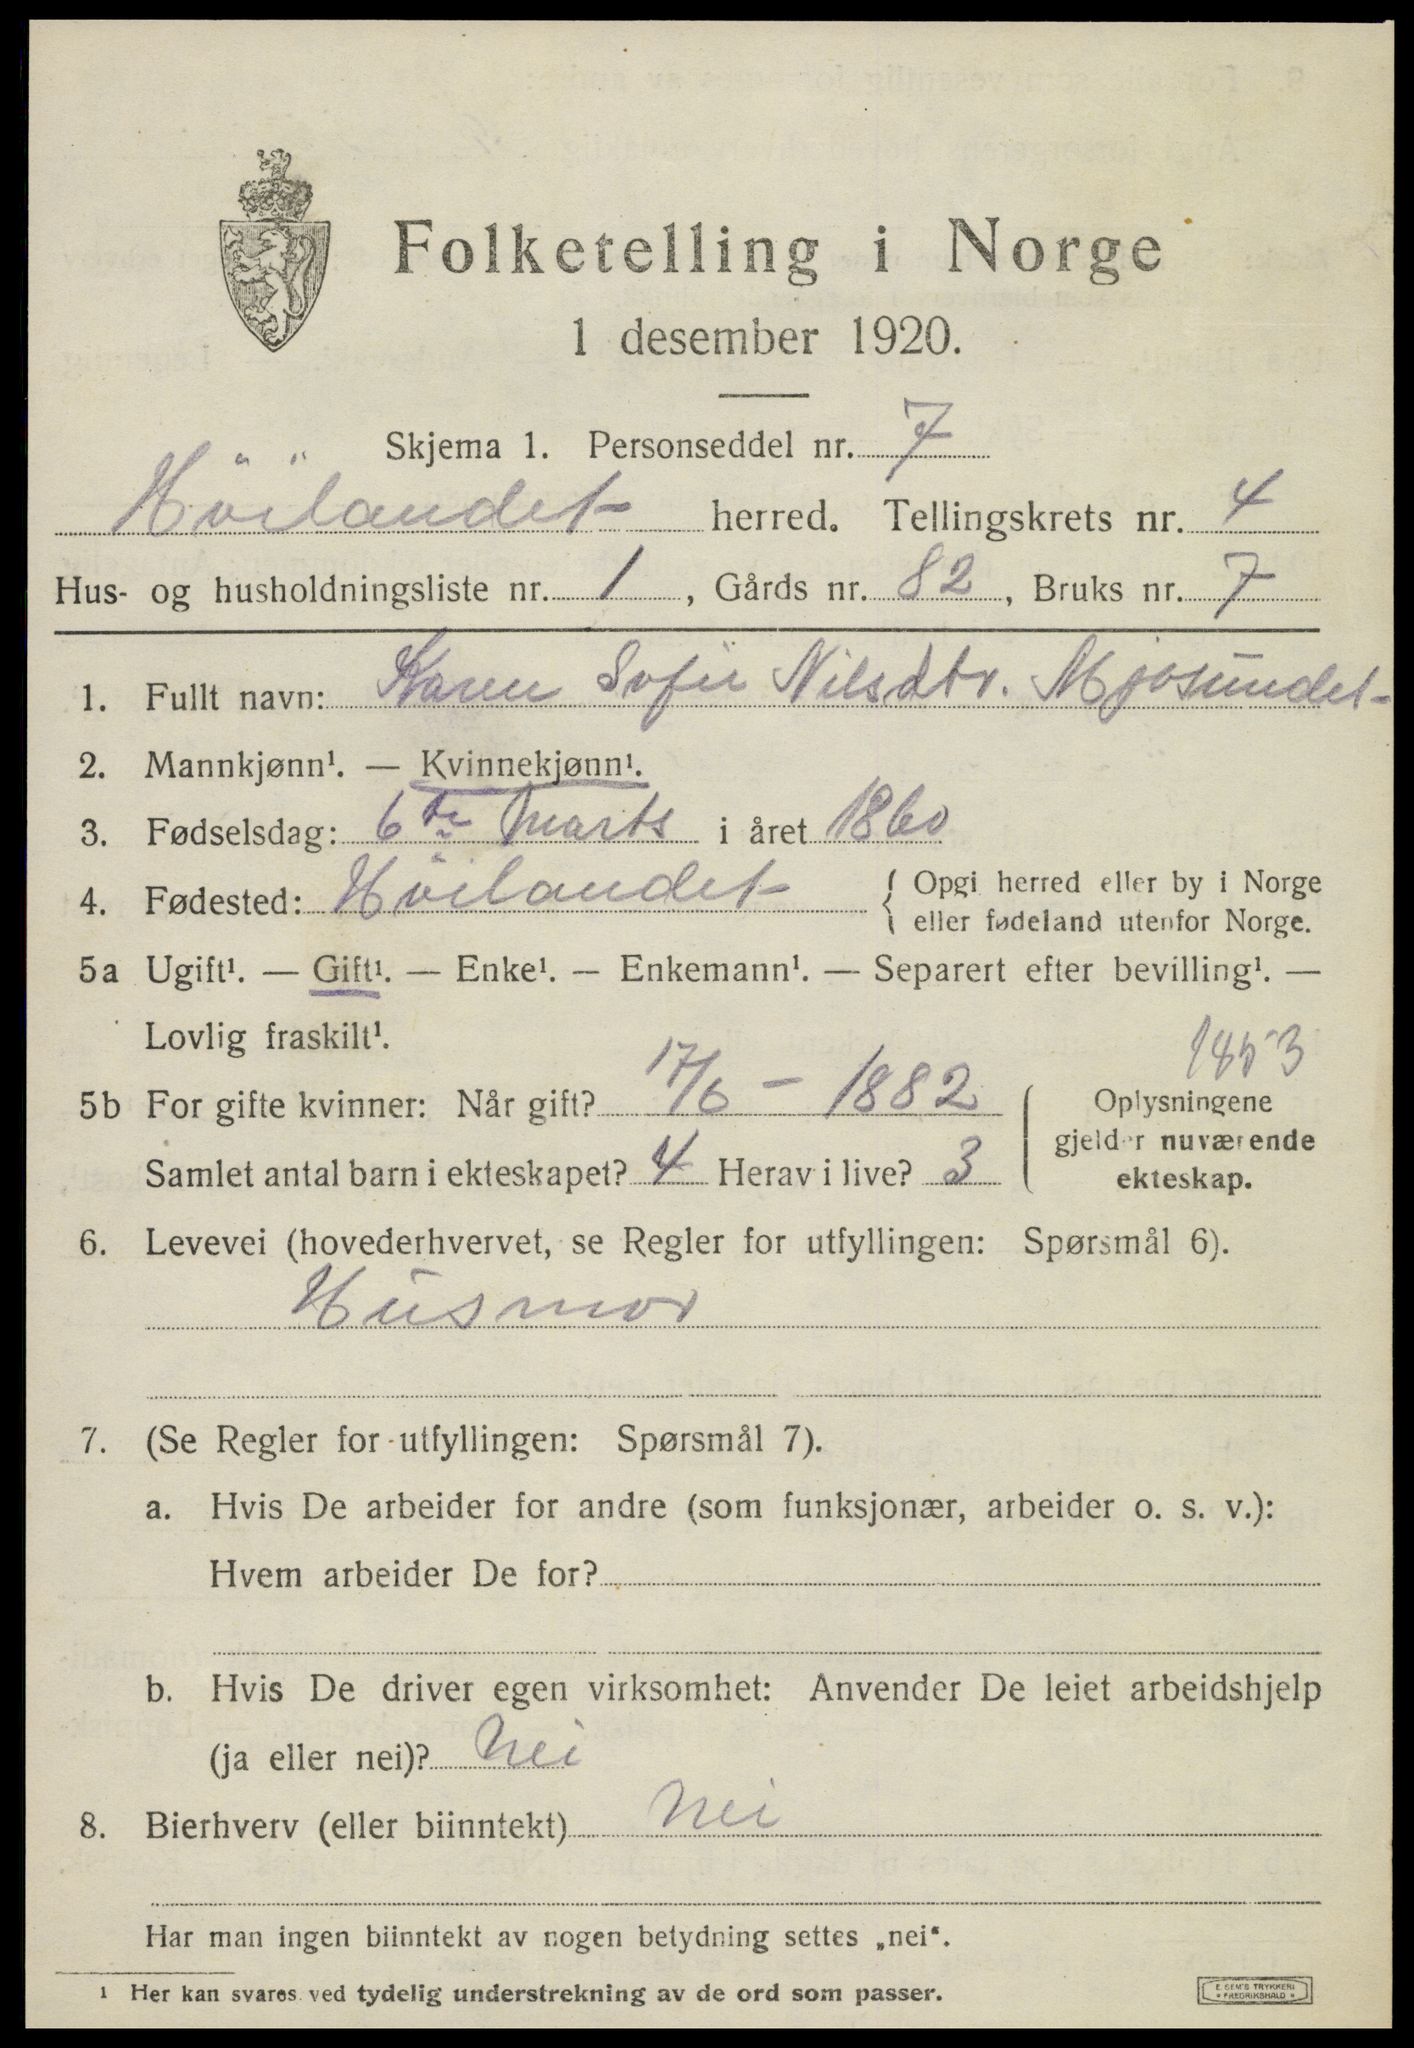 Folketelling i Norge
1 desember 1920.
Skjema 1. Personseddel nr. 7
Höilandet herred. Tellingskrets nr. 4
Hus- og husholdningsliste nr. 1, Gårds nr. 82, Bruks nr. 7
1. Fullt navn: Karen Sofie Nilsdtr. Mjosundet
2. Mannkjønn¹. — Kvinnekjønn¹.
3. Fødselsdag: 6te Marts i året 1860
4. Fødested: Höilandet { Opgi herred eller by i Norge
eller fødeland utenfor Norge.
5a Ugift¹. — Gift¹. — Enke¹. — Enkemann¹. — Separert efter bevilling¹. —
Lovlig fraskilt¹.
1853
5b For gifte kvinner: Når gift? 17/6 - 1882 { Oplysningene
gjelder nuværende
Samlet antal barn i ekteskapet? 4 Herav i live? 3 ekteskap.
6. Levevei (hovederhvervet, se Regler for utfyllingen: Spørsmål 6).
Husmor
7. (Se Regler for utfyllingen: Spørsmål 7).
a. Hvis De arbeider for andre (som funksjonær, arbeider o. s. v.):
Hvem arbeider De for?
b. Hvis De driver egen virksomhet: Anvender De leiet arbeidshjelp
(ja eller nei)? Nei
8. Bierhverv (eller biinntekt) Nei
Har man ingen biinntekt av nogen betydning settes „nei“.
¹ Her kan svares ved tydelig understrekning av de ord som passer.
E SEM'S TRYKKERI
FREDRIKSHALD